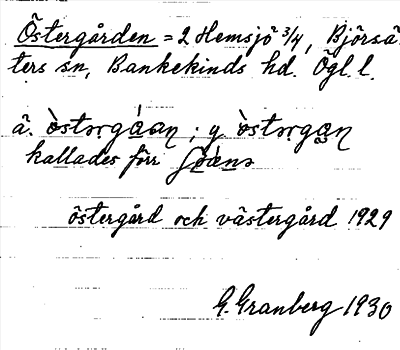 Östergården = 2 Hemsjö 3/4, Björsä-
ters sn, Bankekinds hd. Ögl. l.
ä. òstərgáaṇ ; y òstərgaṇ
kallades förr
östergård och västergård 1929
G. Granberg 1930